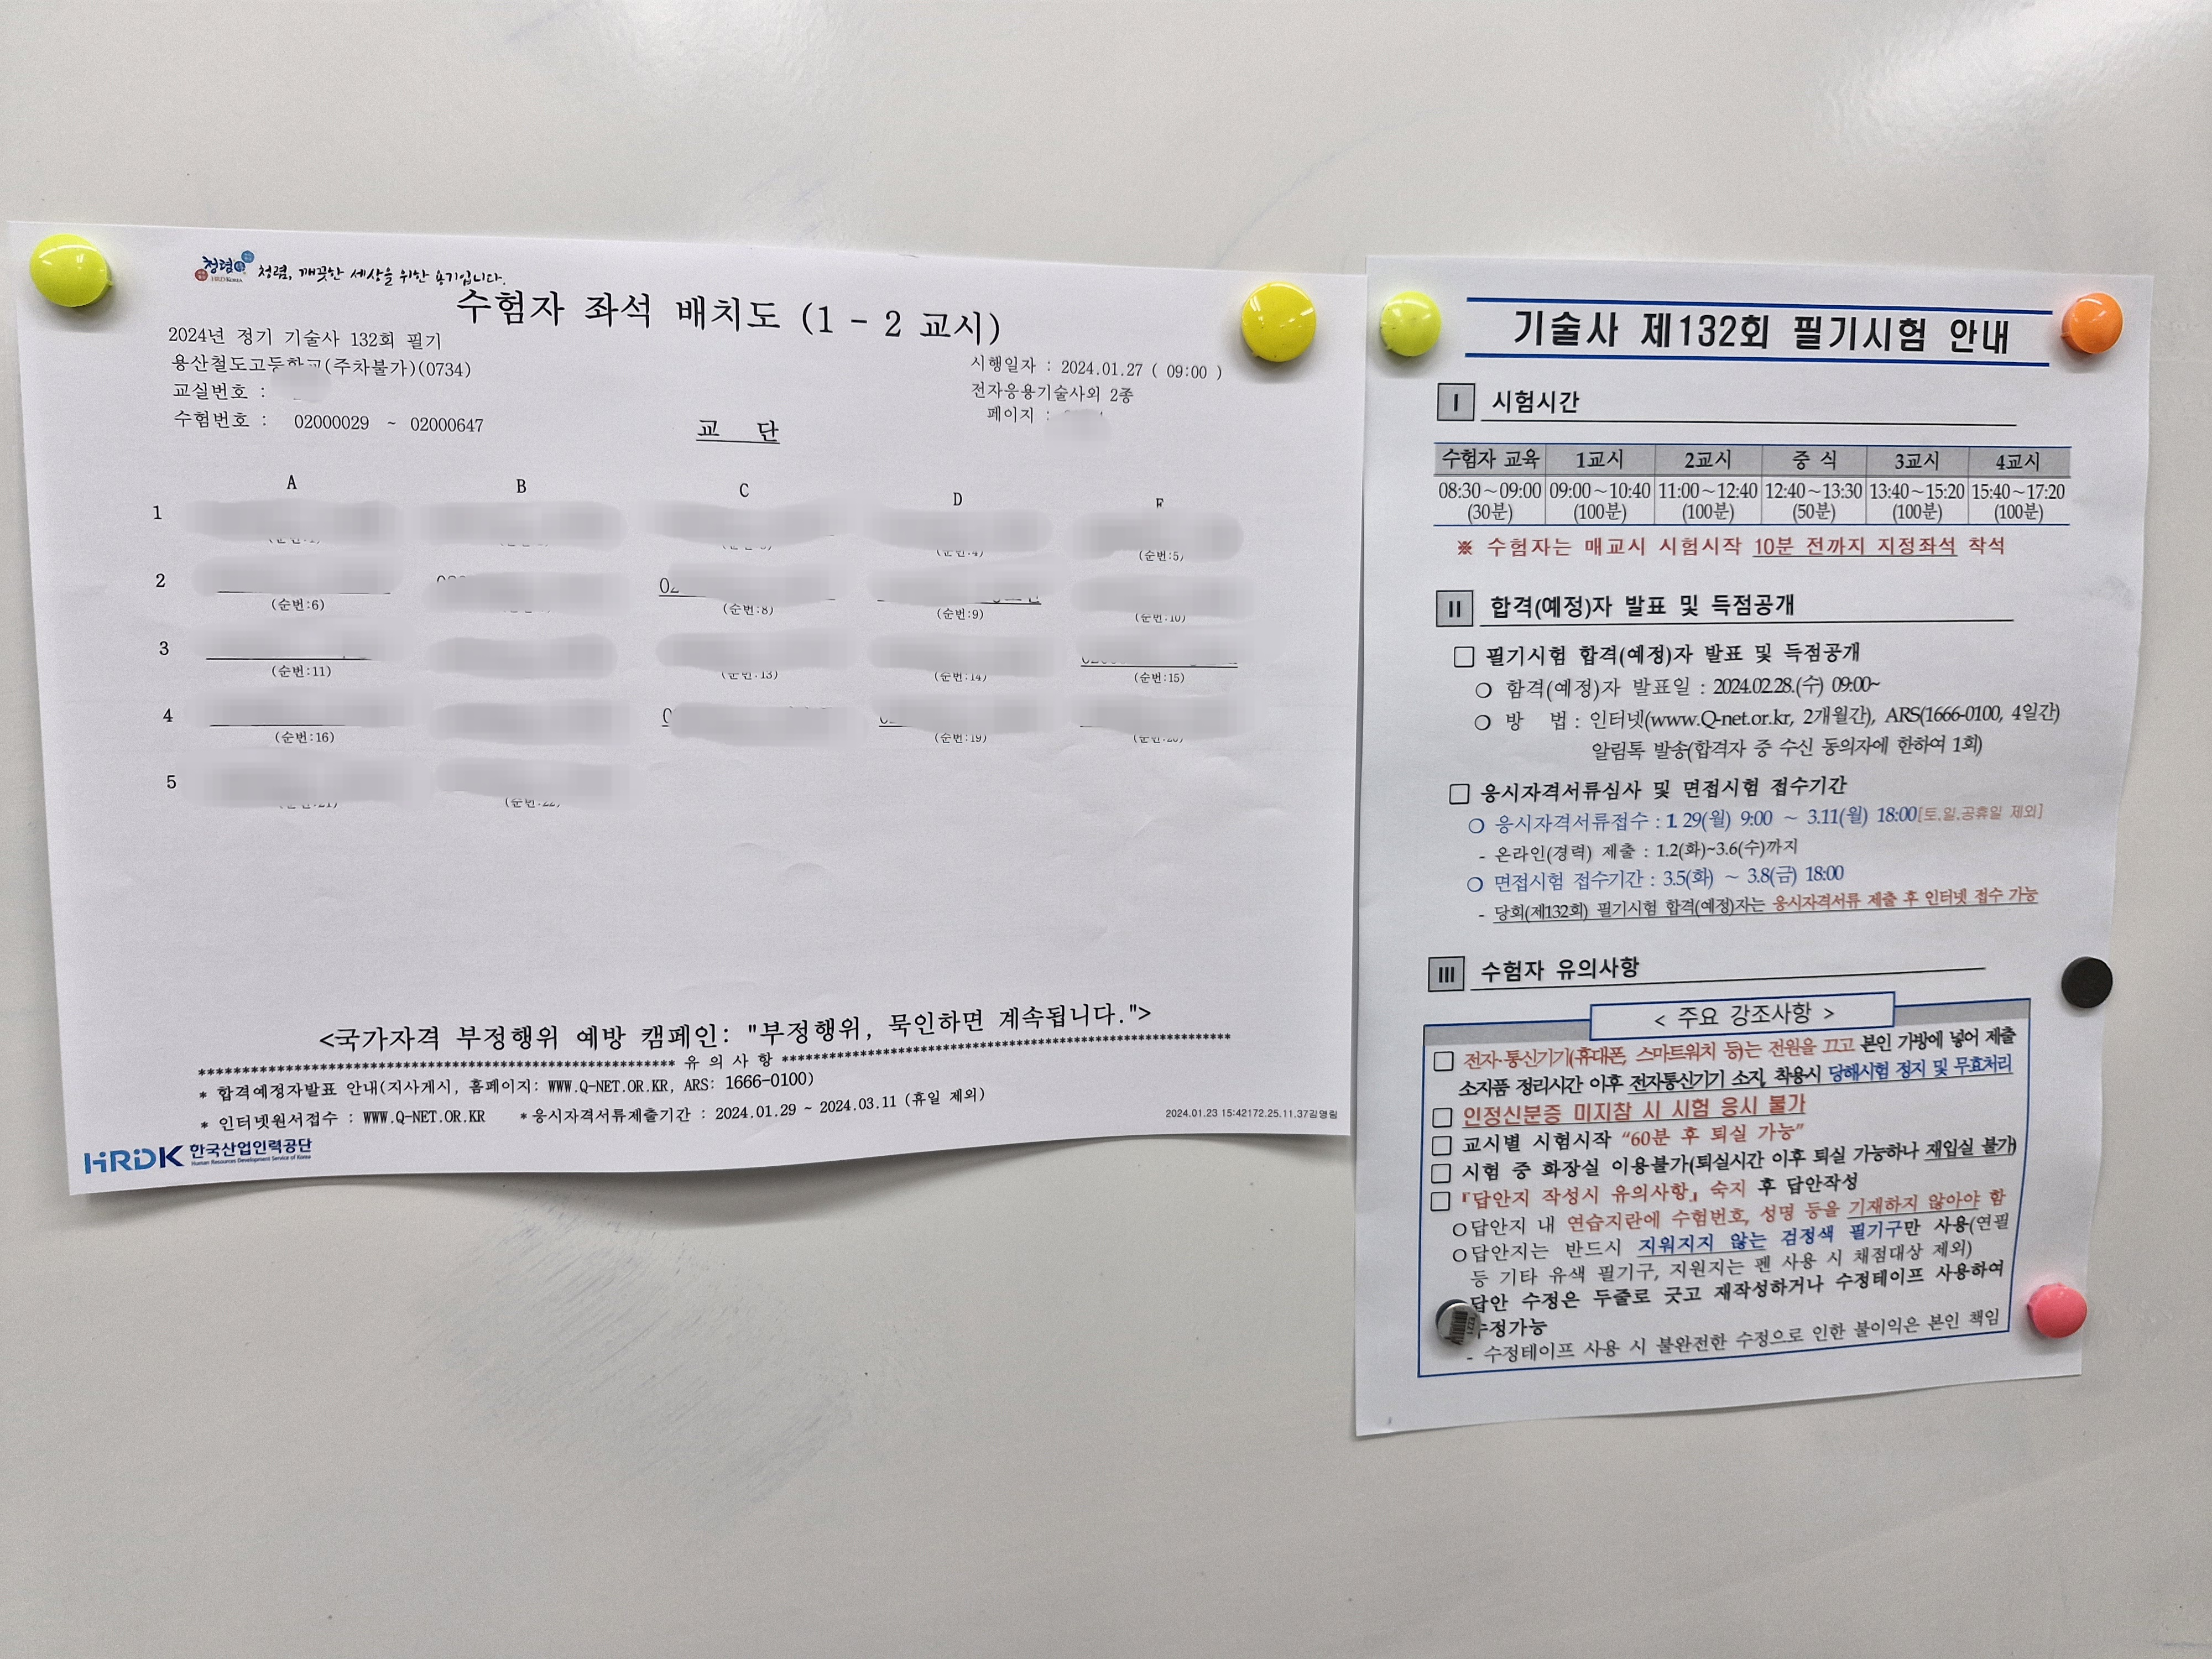 청렴 HRD KOREA 청렴, 깨끗한 세상을 위한 용기입니다.
수험자 좌석 배치도 (1 - 2 교시)
2024년 정기 기술사 132회 필기
용산철도고등학교(주차불가)(0734)
교실번호 :
수험번호 : 02000029 ~ 02000647
시행일자 : 2024.01.27 ( 09:00 )
전자응용기술사외 2종
페이지 :
교 단
A B C D E
1
(순번:4) (순번:5)
2
(순번:6) (순번:8) (순번:9) (순번:10)
3
(순번:11) (순번:13) (순번:14) (순번:15)
4
(순번:16) (순번:19) (순번:20)
5
(순번:21) (순번:22)
<국가자격 부정행위 예방 캠페인: "부정행위, 묵인하면 계속됩니다.">
유 의 사 항
* 합격예정자발표 안내(지사게시, 홈페이지: WWW.Q-NET.OR.KR, ARS: 1666-0100)
* 인터넷원서접수 : WWW.Q-NET.OR.KR * 응시자격서류제출기간 : 2024.01.29 ~ 2024.03.11 (휴일 제외)
2024.01.23 15:42172.25.11.37김영림
HRDK 한국산업인력공단
Human Resources Development Service of Korea
기술사 제132회 필기시험 안내
I 시험시간
수험자 교육 1교시 2교시 중 식 3교시 4교시
08:30~09:00 09:00~10:40 11:00~12:40 12:40~13:30 13:40~15:20 15:40~17:20
(30분) (100분) (100분) (50분) (100분) (100분)
※ 수험자는 매교시 시험시작 10분 전까지 지정좌석 착석
II 합격(예정)자 발표 및 득점공개
□ 필기시험 합격(예정)자 발표 및 득점공개
○ 합격(예정)자 발표일 : 2024.02.28.(수) 09:00~
○ 방 법 : 인터넷(www.Q-net.or.kr, 2개월간), ARS(1666-0100, 4일간)
알림톡 발송(합격자 중 수신 동의자에 한하여 1회)
□ 응시자격서류심사 및 면접시험 접수기간
○ 응시자격서류접수 : 1. 29(월) 9:00 ~ 3.11(월) 18:00[토.일.공휴일 제외]
- 온라인(경력) 제출 : 1.2(화)~3.6(수)까지
○ 면접시험 접수기간 : 3.5(화) ~ 3.8(금) 18:00
- 당회(제132회) 필기시험 합격(예정)자는 응시자격서류 제출 후 인터넷 접수 가능
III 수험자 유의사항
< 주요 강조사항 >
□ 전자·통신기기(휴대폰, 스마트워치 등)는 전원을 끄고 본인 가방에 넣어 제출
소지품 정리시간 이후 전자통신기기 소지, 착용시 당해시험 정지 및 무효처리
□ 인정신분증 미지참 시 시험 응시 불가
□ 교시별 시험시작 “60분 후 퇴실 가능”
□ 시험 중 화장실 이용불가(퇴실시간 이후 퇴실 가능하나 재입실 불가)
□ 『답안지 작성시 유의사항』 숙지 후 답안작성
○ 답안지 내 연습지란에 수험번호, 성명 등을 기재하지 않아야 함
○ 답안지는 반드시 지워지지 않는 검정색 필기구만 사용(연필
등 기타 유색 필기구, 지원지는 펜 사용 시 채점대상 제외)
답안 수정은 두줄로 긋고 재작성하거나 수정테이프 사용하여
수정가능
- 수정테이프 사용 시 불완전한 수정으로 인한 불이익은 본인 책임